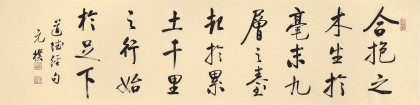 合抱之
木生於
毫末九
層之臺
起於累
土千里
之行始
於足下
道德經句
元